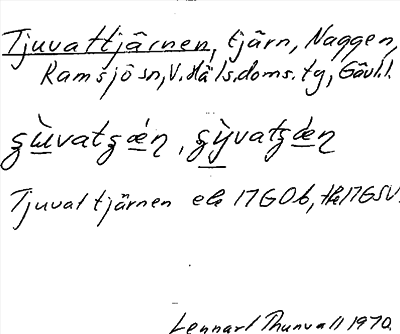 Tjuvattjärnen, tjärn, Naggen,
Ramsjö sn, V. Häls. doms. tg, Gävl.l.
ʂùvatʂǽn, ʂỳvatʂǽn
Tjuvaltjärnen ek 17GOb, tk 17GSV.
Lennart Thunvall 1970.